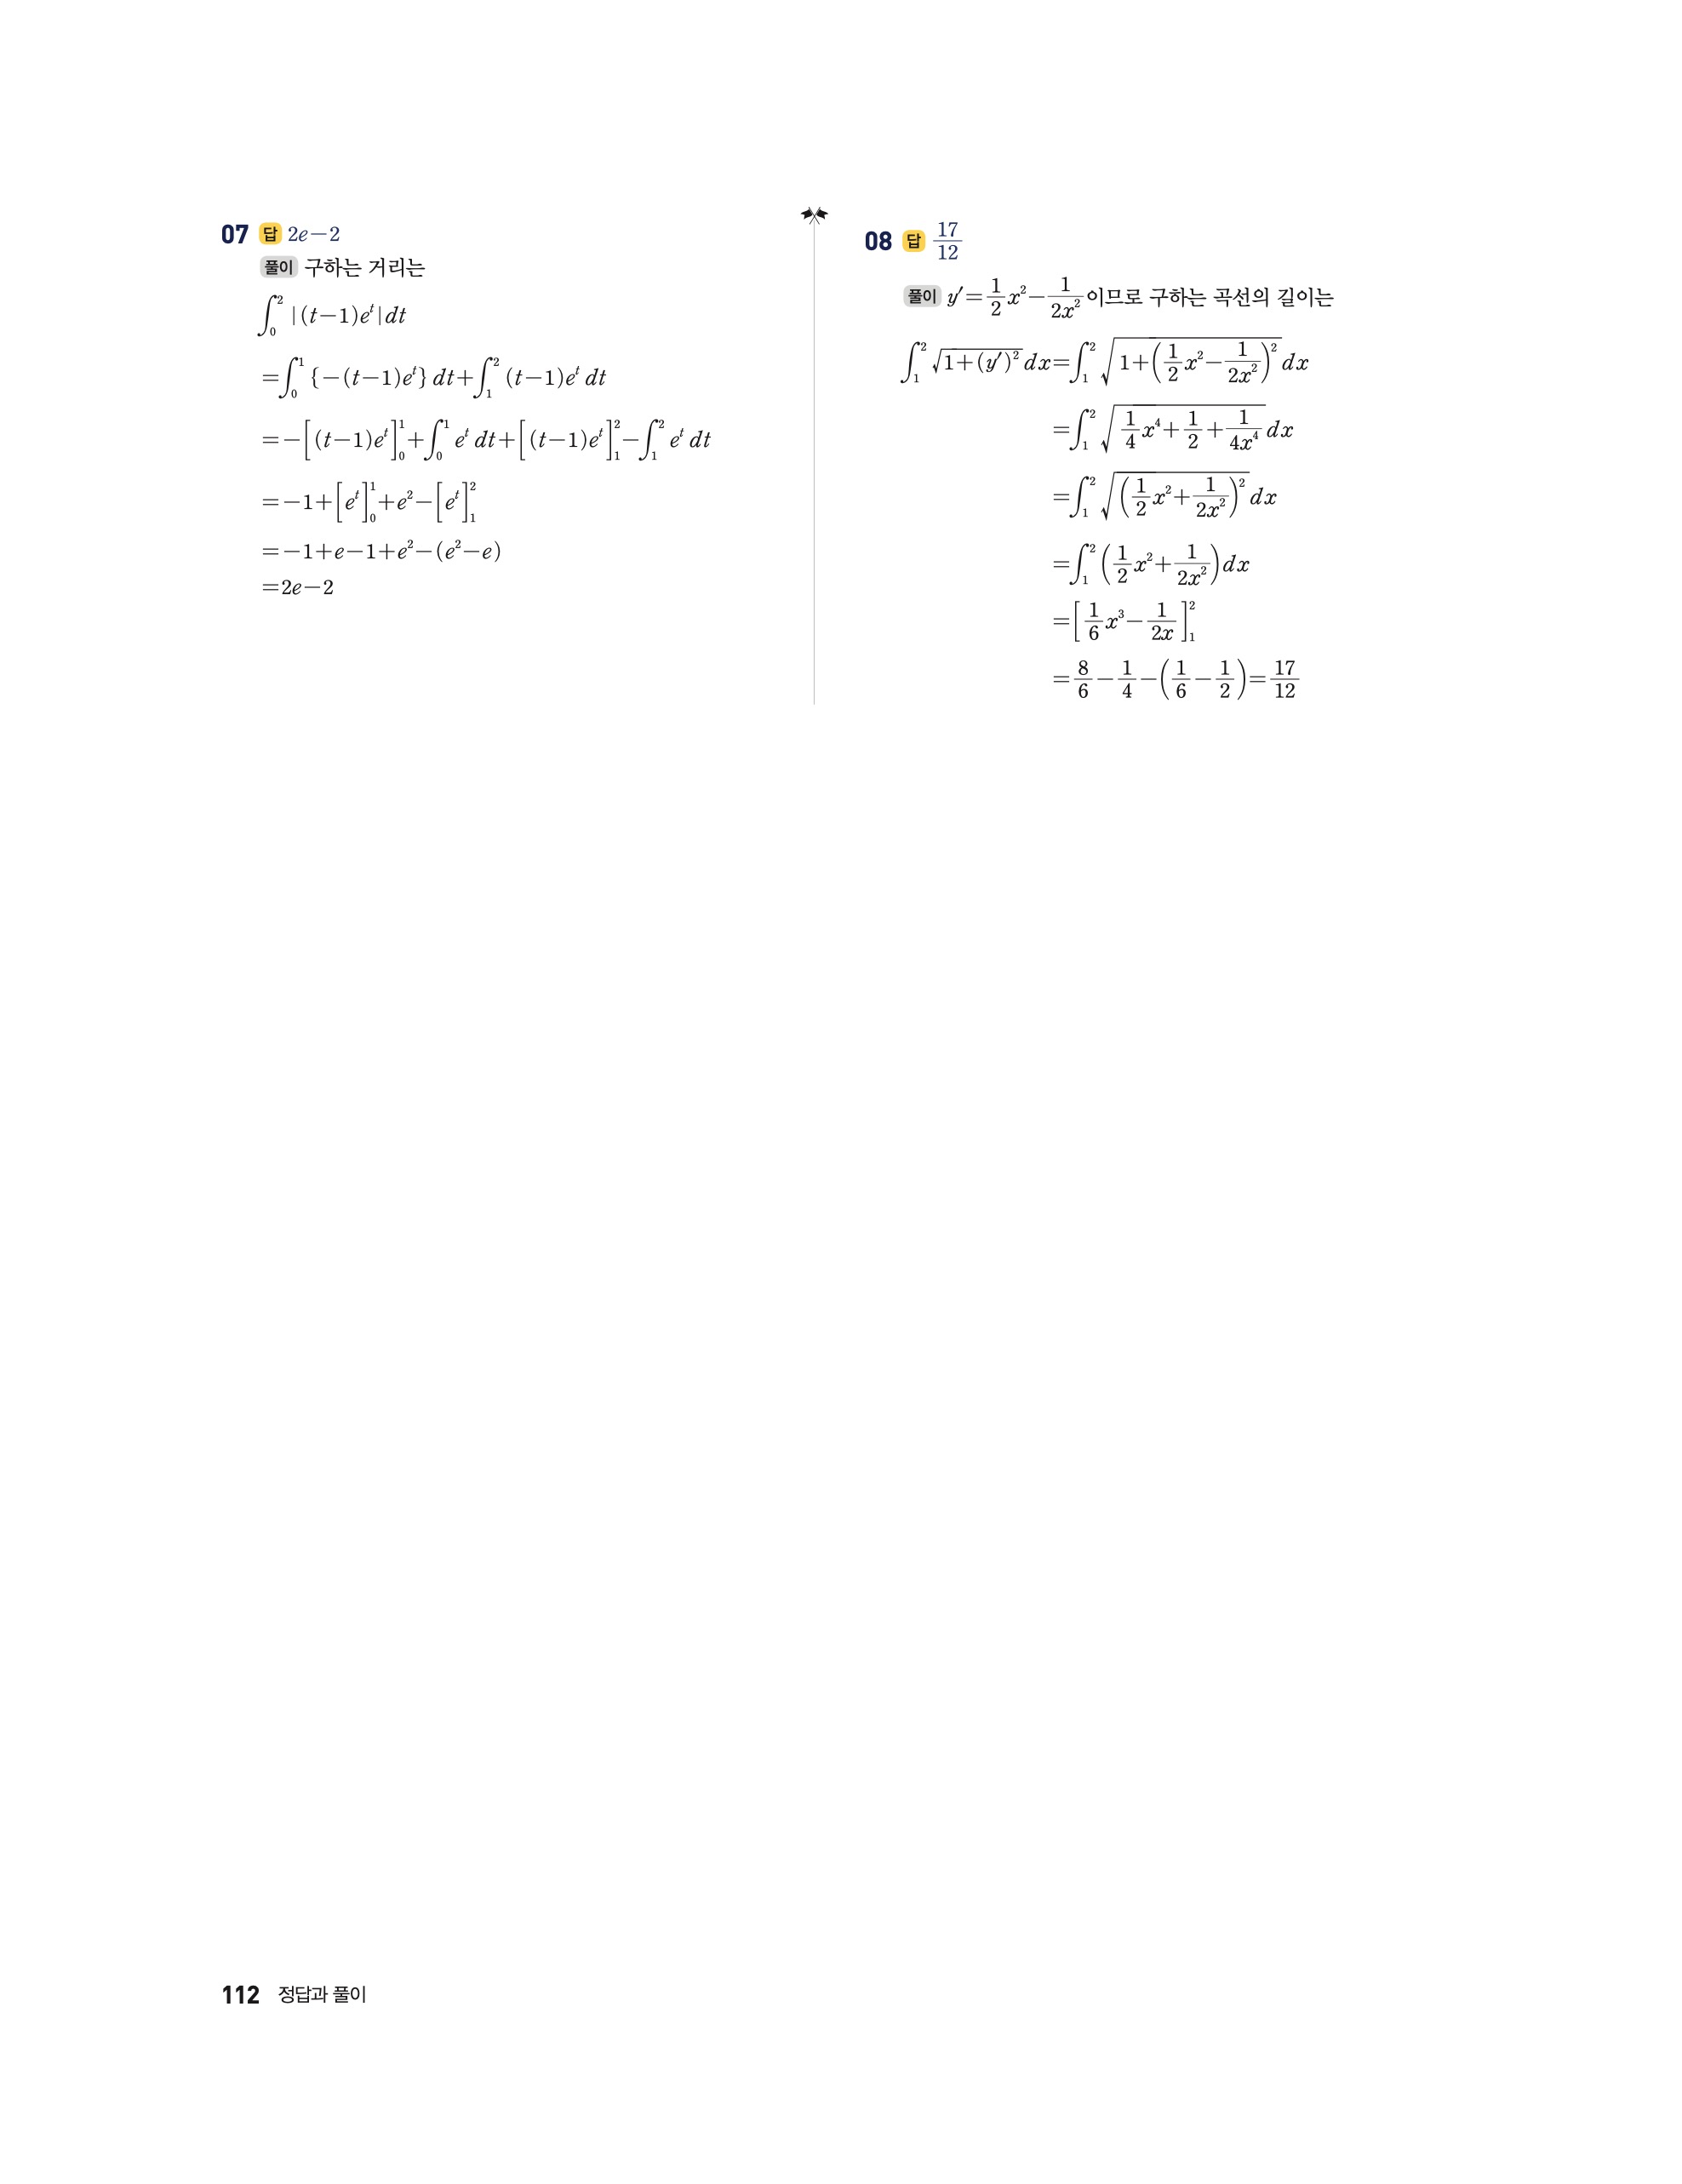 07 답 2e−2
풀이 구하는 거리는
∫₀² |(t−1)eᵗ|dt
=∫₀¹ {−(t−1)eᵗ} dt+∫₁² (t−1)eᵗ dt
=−[(t−1)eᵗ]₀¹+∫₀¹ eᵗ dt+[(t−1)eᵗ]₁²−∫₁² eᵗ dt
=−1+[eᵗ]₀¹+e²−[eᵗ]₁²
=−1+e−1+e²−(e²−e)
=2e−2
08 답 17/12
풀이 y′=1/2 x²−1/(2x²)이므로 구하는 곡선의 길이는
∫₁² √(1+(y′)²) dx=∫₁² √(1+(1/2 x²−1/(2x²))²) dx
=∫₁² √(1/4 x⁴+1/2+1/(4x⁴)) dx
=∫₁² √((1/2 x²+1/(2x²))²) dx
=∫₁² (1/2 x²+1/(2x²))dx
=[1/6 x³−1/(2x)]₁²
=8/6−1/4−(1/6−1/2)=17/12
112 정답과 풀이